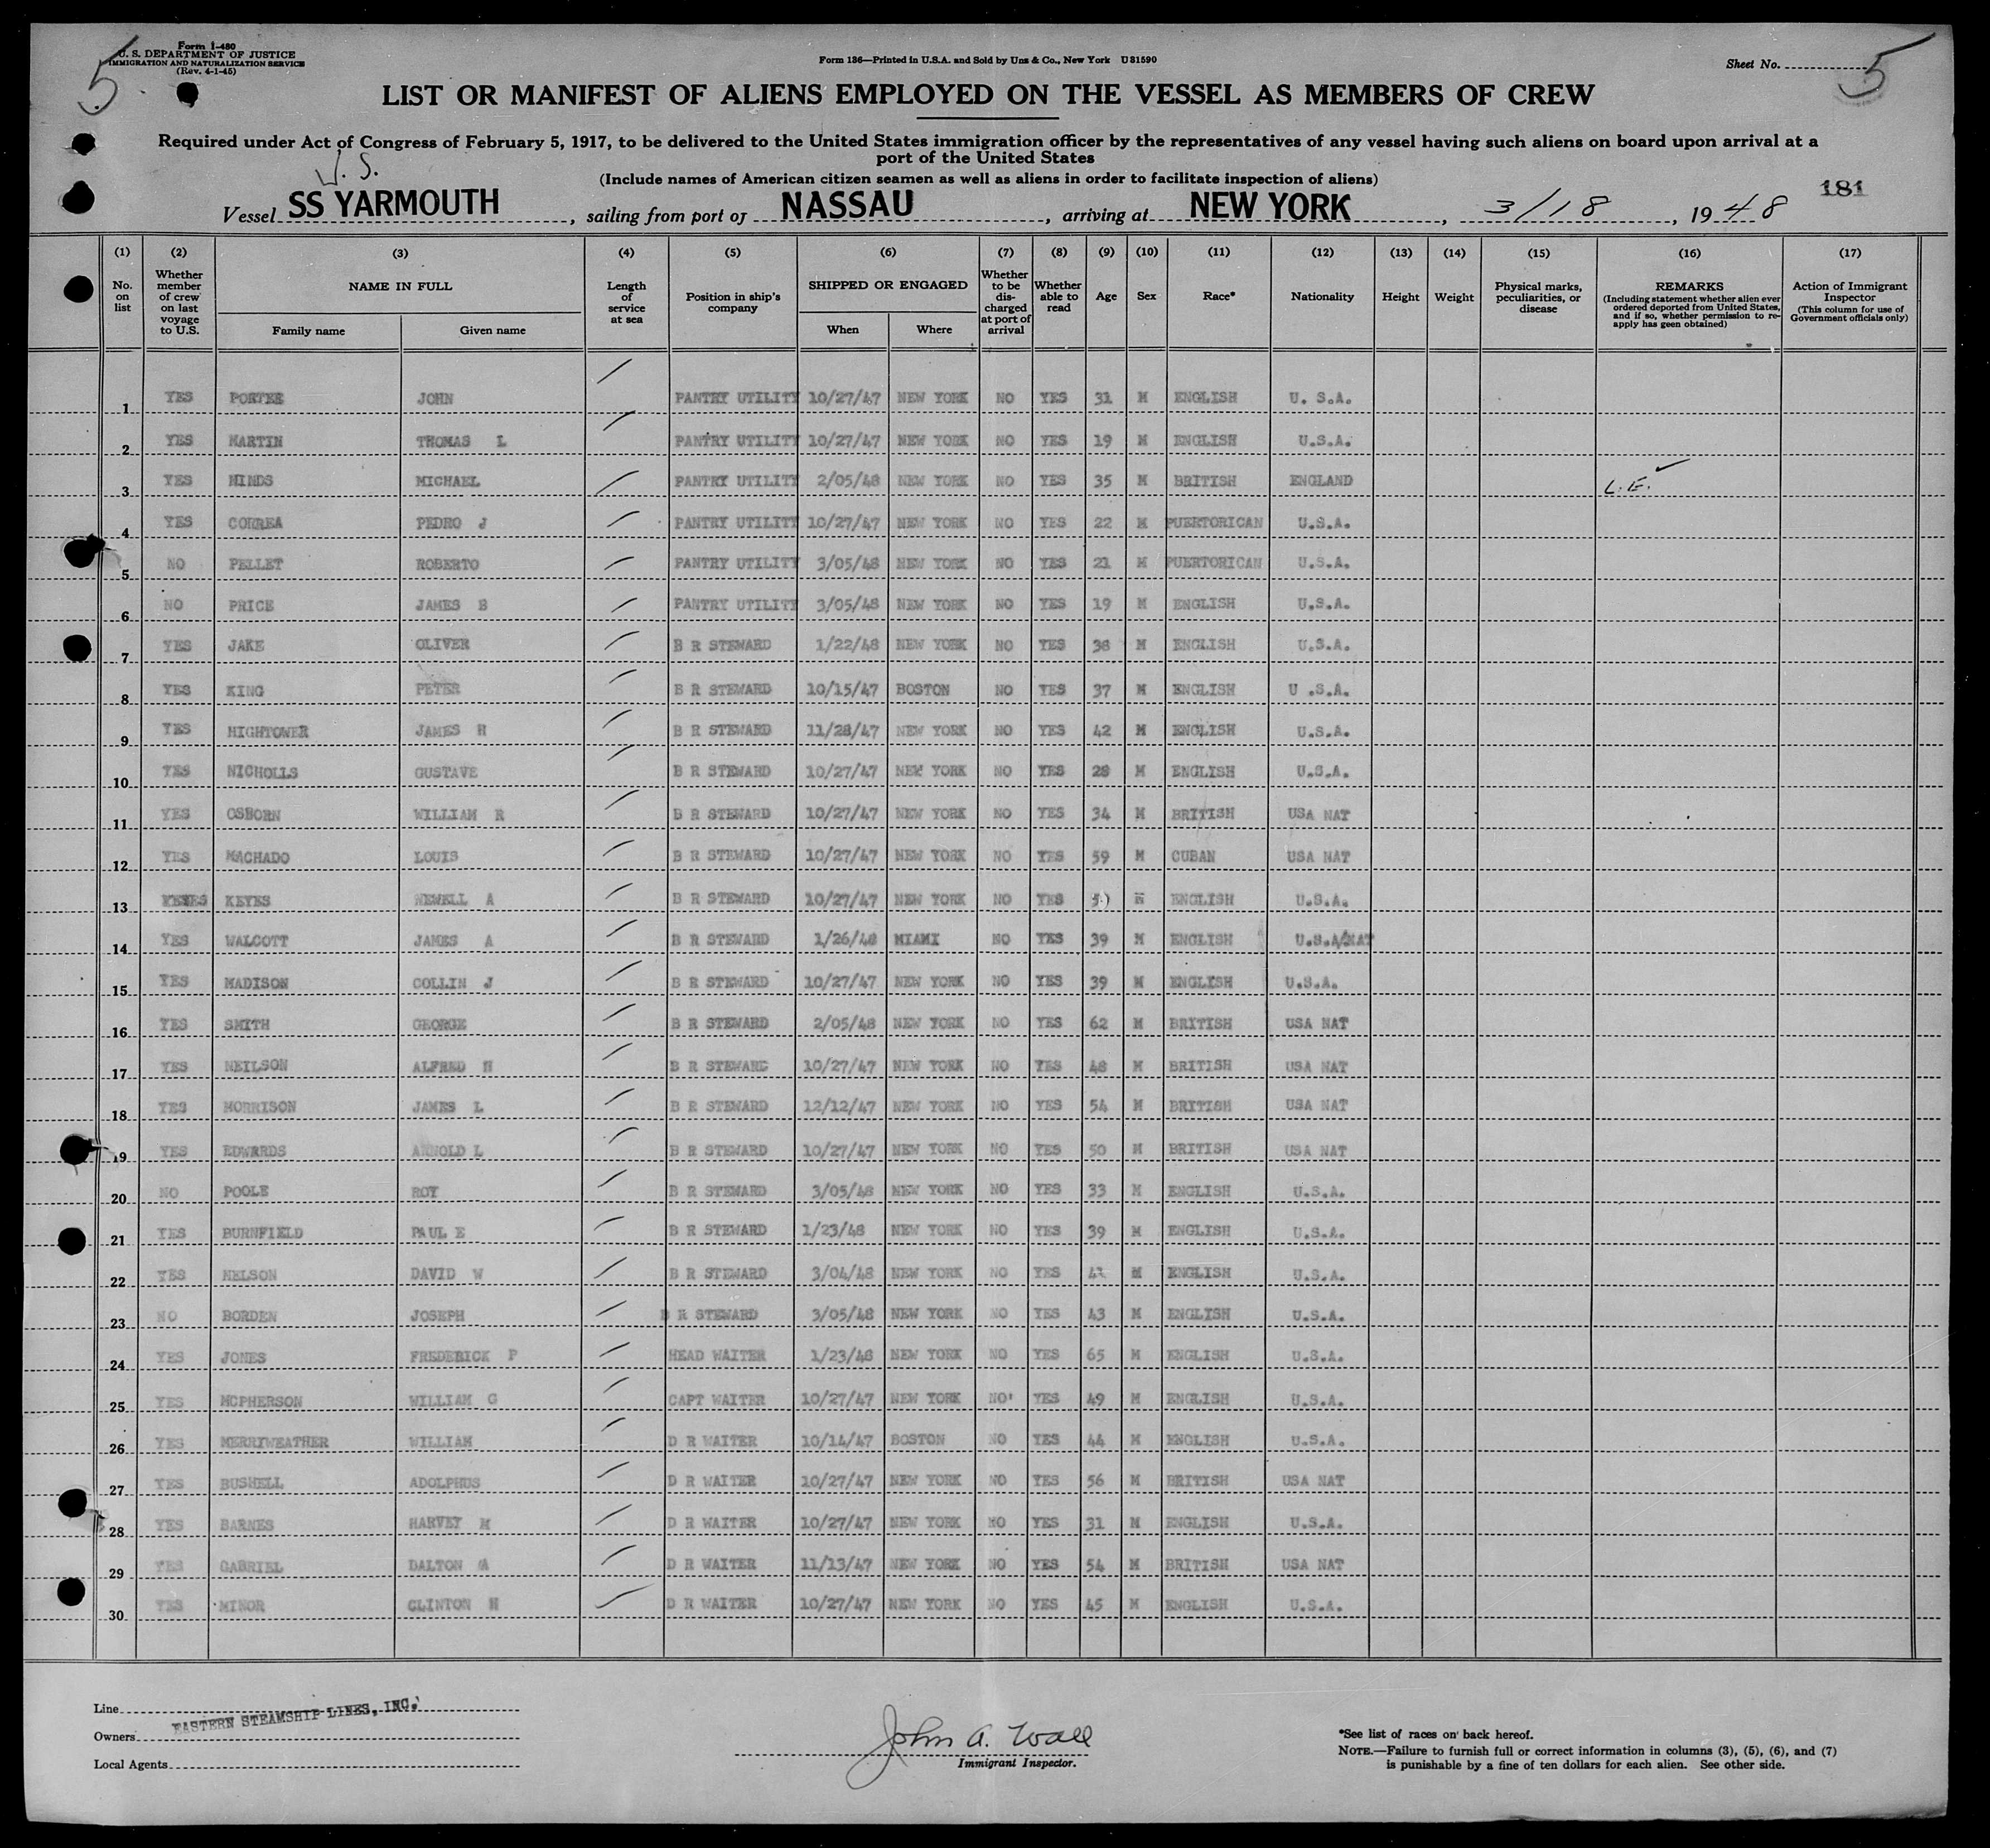 5
Form I-480
U. S. DEPARTMENT OF JUSTICE
IMMIGRATION AND NATURALIZATION SERVICE
(Rev. 4-1-45)
Form 136—Printed in U.S.A. and Sold by Unz & Co., New York U81590
Sheet No. 5
LIST OR MANIFEST OF ALIENS EMPLOYED ON THE VESSEL AS MEMBERS OF CREW
Required under Act of Congress of February 5, 1917, to be delivered to the United States immigration officer by the representatives of any vessel having such aliens on board upon arrival at a
port of the United States
(Include names of American citizen seamen as well as aliens in order to facilitate inspection of aliens)
181
Vessel SS YARMOUTH, sailing from port of NASSAU, arriving at NEW YORK, 3/18, 1948
(1) (2) (3) (4) (5) (6) (7) (8) (9) (10) (11) (12) (13) (14) (15) (16) (17)
No. on list
Whether member of crew on last voyage to U.S.
NAME IN FULL
Family name
Given name
Length of service at sea
Position in ship's company
SHIPPED OR ENGAGED
When
Where
Whether to be discharged at port of arrival
Whether able to read
Age
Sex
Race*
Nationality
Height
Weight
Physical marks, peculiarities, or disease
REMARKS
(Including statement whether alien ever ordered deported from United States, and if so, whether permission to reapply has geen obtained)
Action of Immigrant Inspector
(This column for use of Government officials only)
1 YES PORTER JOHN PANTRY UTILITY 10/27/47 NEW YORK NO YES 31 M ENGLISH U. S.A.
2 YES MARTIN THOMAS L PANTRY UTILITY 10/27/47 NEW YORK NO YES 19 M ENGLISH U.S.A.
3 YES HINDS MICHAEL PANTRY UTILITY 2/05/48 NEW YORK NO YES 35 M BRITISH ENGLAND L.E.
4 YES CORREA PEDRO J PANTRY UTILITY 10/27/47 NEW YORK NO YES 22 M PUERTORICAN U.S.A.
5 NO PELLET ROBERTO PANTRY UTILITY 3/05/48 NEW YORK NO YES 21 M PUERTORICAN U.S.A.
6 NO PRICE JAMES B PANTRY UTILITY 3/05/48 NEW YORK NO YES 19 M ENGLISH U.S.A.
7 YES JAKE OLIVER B R STEWARD 1/22/48 NEW YORK NO YES 38 M ENGLISH U.S.A.
8 YES KING PETER B R STEWARD 10/15/47 BOSTON NO YES 37 M ENGLISH U .S.A.
9 YES HIGHTOWER JAMES H B R STEWARD 11/28/47 NEW YORK NO YES 42 M ENGLISH U.S.A.
10 YES NICHOLLS GUSTAVE B R STEWARD 10/27/47 NEW YORK NO YES 28 M ENGLISH U.S.A.
11 YES OSBORN WILLIAM R B R STEWARD 10/27/47 NEW YORK NO YES 34 M BRITISH USA NAT
12 YES MACHADO LOUIS B R STEWARD 10/27/47 NEW YORK NO YES 59 M CUBAN USA NAT
13 KEYES NEWELL A B R STEWARD 10/27/47 NEW YORK NO YES M ENGLISH U.S.A.
14 YES WALCOTT JAMES A B R STEWARD 1/26/48 MIAMI NO YES 39 M ENGLISH U.S.A/NAT
15 YES MADISON COLLIN J B R STEWARD 10/27/47 NEW YORK NO YES 39 M ENGLISH U.S.A.
16 YES SMITH GEORGE B R STEWARD 2/05/48 NEW YORK NO YES 62 M BRITISH USA NAT
17 YES NEILSON ALFRED H B R STEWARD 10/27/47 NEW YORK NO YES 48 M BRITISH USA NAT
18 YES MORRISON JAMES L B R STEWARD 12/12/47 NEW YORK NO YES 54 M BRITISH USA NAT
19 YES EDWARDS ARNOLD L B R STEWARD 10/27/47 NEW YORK NO YES 50 M BRITISH USA NAT
20 NO POOLE ROY B R STEWARD 3/05/48 NEW YORK NO YES 33 M ENGLISH U.S.A.
21 YES BURNFIELD PAUL E B R STEWARD 1/23/48 NEW YORK NO YES 39 M ENGLISH U.S.A.
22 YES NELSON DAVID W B R STEWARD 3/04/48 NEW YORK NO YES M ENGLISH U.S.A.
23 NO BORDEN JOSEPH B R STEWARD 3/05/48 NEW YORK NO YES 43 M ENGLISH U.S.A.
24 YES JONES FREDERICK P HEAD WAITER 1/23/48 NEW YORK NO YES 65 M ENGLISH U.S.A.
25 YES MCPHERSON WILLIAM G CAPT WAITER 10/27/47 NEW YORK NO YES 49 M ENGLISH U.S.A.
26 YES MERRIWEATHER WILLIAM D R WAITER 10/14/47 BOSTON NO YES 44 M ENGLISH U.S.A.
27 YES BUSHELL ADOLPHUS D R WAITER 10/27/47 NEW YORK NO YES 56 M BRITISH USA NAT
28 YES BARNES HARVEY M D R WAITER 10/27/47 NEW YORK NO YES 31 M ENGLISH U.S.A.
29 YES GABRIEL DALTON A D R WAITER 11/13/47 NEW YORK NO YES 54 M BRITISH USA NAT
30 YES MINOR CLINTON H D R WAITER 10/27/47 NEW YORK NO YES 45 M ENGLISH U.S.A.
Line
Owners EASTERN STEAMSHIP LINES, INC.
Local Agents
John A. Wall
Immigrant Inspector.
*See list of races on back hereof.
NOTE.—Failure to furnish full or correct information in columns (3), (5), (6), and (7)
is punishable by a fine of ten dollars for each alien. See other side.